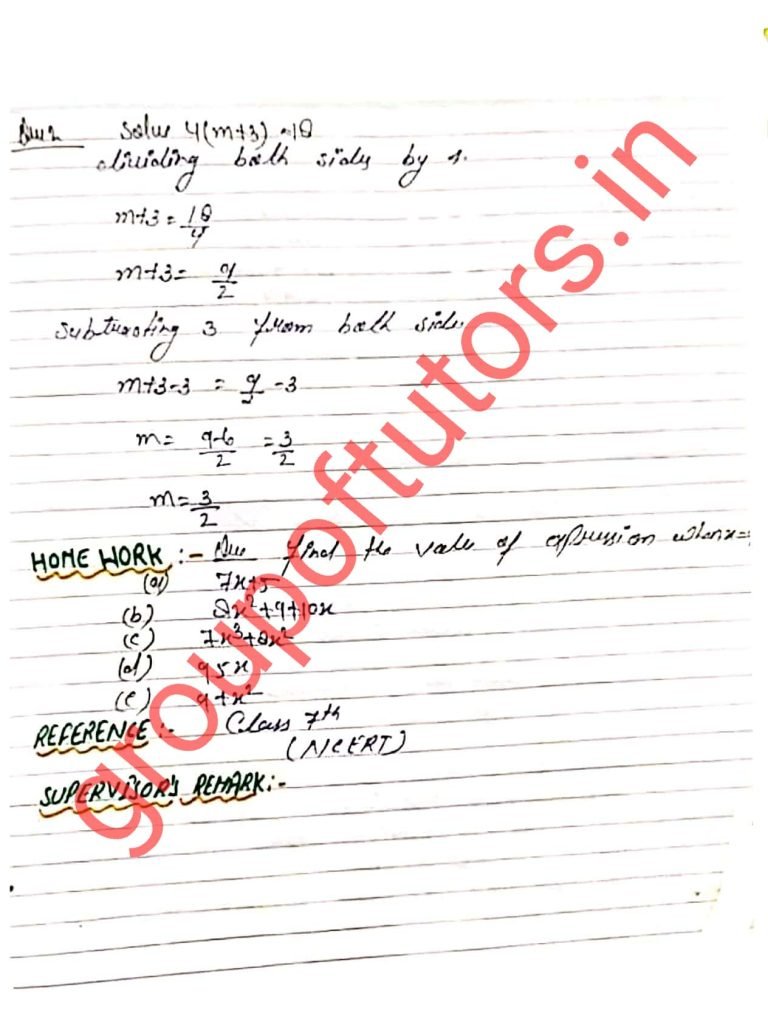 Que 2 Solve 4(m+3) = 18
dividing both sides by 4.
m+3 = 18/4
m+3 = 9/2
Subtracting 3 from both side
m+3-3 = 9/2 -3
m = 9-6/2 = 3/2
m = 3/2
HOME WORK :- Que find the value of expression when x=
(a) 7x+5
(b) 2x²+9+10x
(c) 7x³+2x²
(d) 95x
(e) 9+x²
REFERENCE :- Class 7th
(NCERT)
SUPERVISOR'S REMARK :-
groupoftutors.in